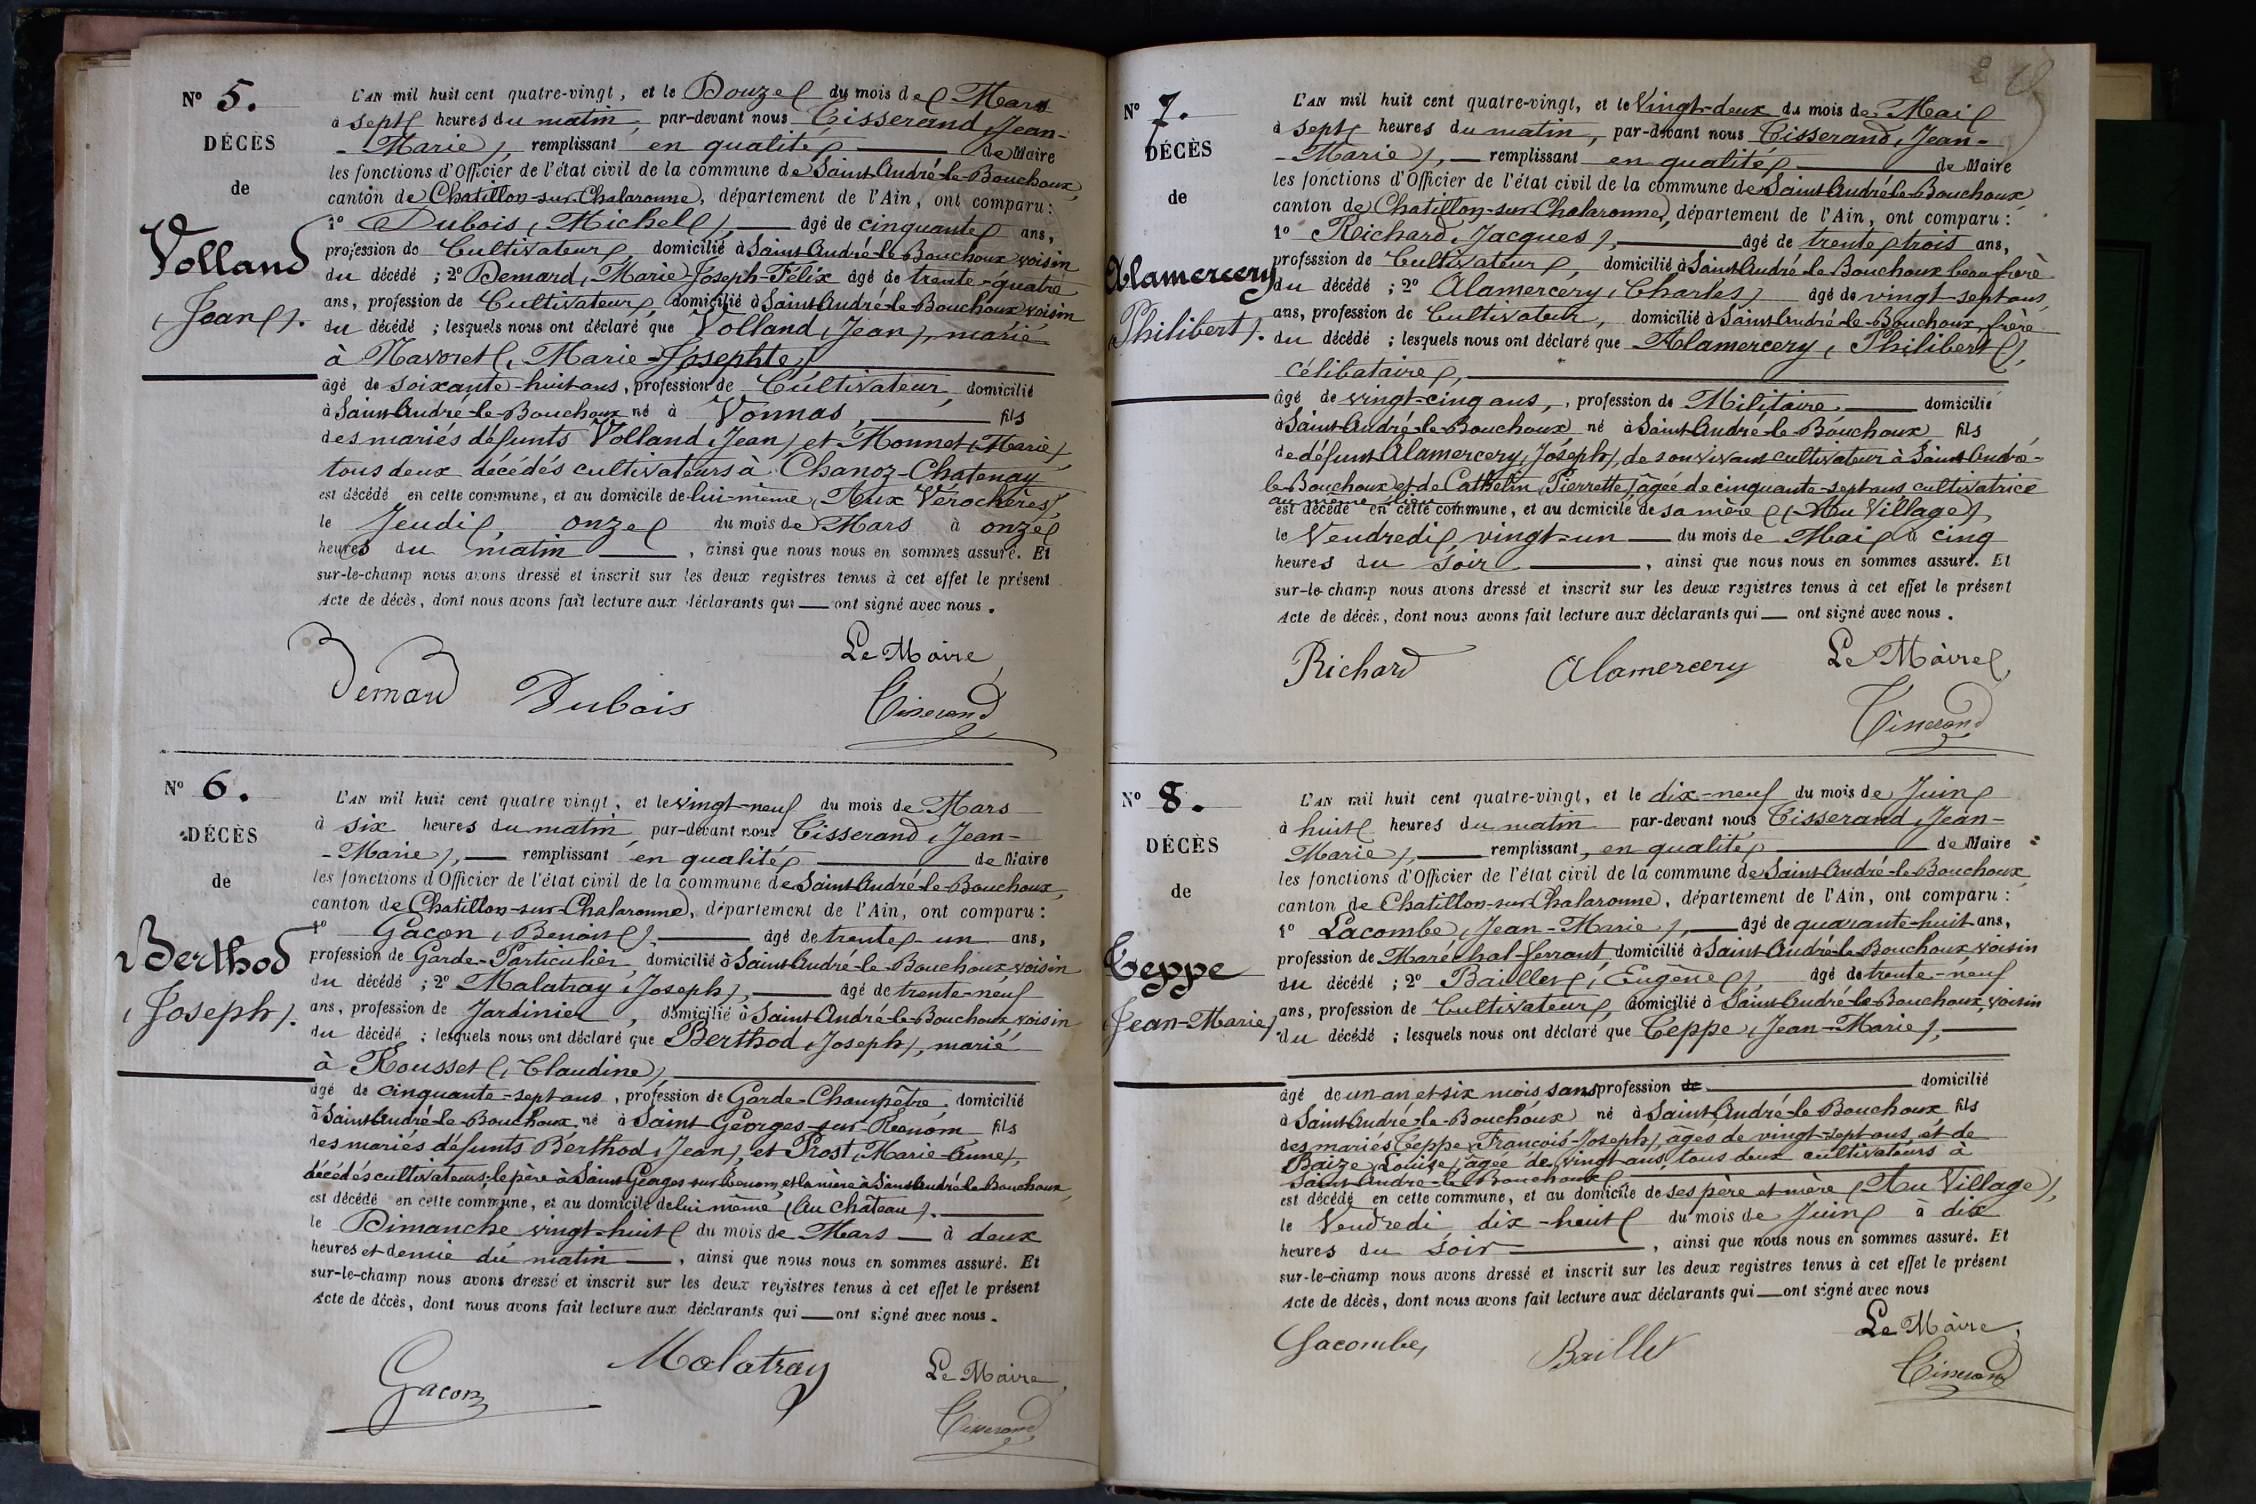 N° 5.
DÉCÈS
de
Volland
(Jean).
L'AN mil huit cent quatre-vingt, et le Douze du mois de Mars
à sept heures du matin, par-devant nous Tisserand, Jean-
-Marie), remplissant en qualité de Maire
les fonctions d'Officier de l'état civil de la commune de Saint-André-le-Bouchoux,
canton de Chatillon-sur-Chalaronne, département de l'Ain, ont comparu :
1° Dubois (Michel), âgé de cinquante ans,
profession de Cultivateur, domicilié à Saint-André-le-Bouchoux voisin
du décédé ; 2° Demard (Marie-Joseph-Félix âgé de trente-quatre
ans, profession de Cultivateur, domicilié à Saint-André-le-Bouchoux voisin
du décédé ; lesquels nous ont déclaré que Volland (Jean), marié
à Navoret (Marie-Josephte)
âgé de soixante-huit ans, profession de Cultivateur, domicilié
à Saint-André-le-Bouchoux né à Vonnas, fils
des mariés défunts Volland (Jean) et Monnet (Marie)
tous deux décédés cultivateurs à Chanoz-Chatenay
est décédé en cette commune, et au domicile de lui-même (Aux Vérochères),
le Jeudi, onze du mois de Mars à onze
heures du matin, ainsi que nous nous en sommes assuré. Et
sur-le-champ nous avons dressé et inscrit sur les deux registres tenus à cet effet le présent
Acte de décès, dont nous avons fait lecture aux déclarants qui ont signé avec nous.
Le Maire,
Demard Dubois Tisserand
N° 6.
DÉCÈS
de
Berthod
(Joseph).
L'AN mil huit cent quatre vingt, et le vingt-neuf du mois de Mars
à six heures du matin, par-devant nous Tisserand, Jean-
-Marie), remplissant en qualité de Maire
les fonctions d'Officier de l'état civil de la commune de Saint-André-le-Bouchoux,
canton de Chatillon-sur-Chalaronne), département de l'Ain, ont comparu :
1° Gacon (Benoit), âgé de trente-un ans,
profession de Garde-Particulier, domicilié à Saint-André-le-Bouchoux voisin
du décédé ; 2° Malatray (Joseph), âgé de trente-neuf
ans, profession de Jardinier, domicilié à Saint-André-le-Bouchoux voisin
du décédé ; lesquels nous ont déclaré que Berthod (Joseph), marié
à Rousset (Claudine)
âgé de cinquante-sept ans, profession de Garde-Champêtre, domicilié
à Saint-André-le-Bouchoux né à Saint-Georges-sur-Renom fils
des mariés défunts Berthod (Jean), et Prost (Marie-Anne),
décédés cultivateurs, le père à Saint-Georges-sur-Renom, et la mère à Saint-André-le-Bouchoux,
est décédé en cette commune, et au domicile de lui même (Au Château).
le Dimanche vingt-huit du mois de Mars à deux
heures et demie du matin, ainsi que nous nous en sommes assuré. Et
sur-le-champ nous avons dressé et inscrit sur les deux registres tenus à cet effet le présent
Acte de décès, dont nous avons fait lecture aux déclarants qui ont signé avec nous.
Gacon Malatray Le Maire,
Tisserand
N° 7.
DÉCÈS
de
Alamercery
(Philibert).
L'AN mil huit cent quatre-vingt, et le Vingt-deux du mois de Mai
à sept heures du matin, par-devant nous Tisserand, Jean-
-Marie), remplissant en qualité de Maire
les fonctions d'Officier de l'état civil de la commune de Saint-André-le-Bouchoux
canton de Chatillon-sur-Chalaronne), département de l'Ain, ont comparu :
1° Richard (Jacques), âgé de trente-trois ans,
profession de Cultivateur, domicilié à Saint-André-le-Bouchoux beau frère
du décédé ; 2° Alamercery (Charles) âgé de vingt-sept ans,
ans, profession de Cultivateur, domicilié à Saint-André-le-Bouchoux, frère
du décédé ; lesquels nous ont déclaré que Alamercery (Philibert),
célibataire,
âgé de vingt-cinq ans, profession de Militaire, domicilié
à Saint-André-le-Bouchoux né à Saint-André-le-Bouchoux fils
de défunt Alamercery (Joseph), de son vivant cultivateur à Saint-André-
le-Bouchoux et de Cathelin (Pierrette) âgée de cinquante-sept ans cultivatrice
au même lieu
est décédé en cette commune, et au domicile de sa mère (Au Village),
le Vendredi vingt-un du mois de Mai à cinq
heures du soir, ainsi que nous nous en sommes assuré. Et
sur-le-champ nous avons dressé et inscrit sur les deux registres tenus à cet effet le présent
Acte de décès, dont nous avons fait lecture aux déclarants qui ont signé avec nous.
Richard Alamercery Le Maire,
Tisserand
N° 8.
DÉCÈS
de
Teppe
(Jean-Marie).
L'AN mil huit cent quatre-vingt, et le dix-neuf du mois de Juin
à huit heures du matin par-devant nous Tisserand, Jean-
Marie), remplissant, en qualité de Maire
les fonctions d'Officier de l'état civil de la commune de Saint-André-le-Bouchoux
canton de Chatillon-sur-Chalaronne, département de l'Ain, ont comparu :
1° Lacombe (Jean-Marie), âgé de quarante-huit ans,
profession de Maréchal-ferrant, domicilié à Saint-André-le-Bouchoux voisin
du décédé ; 2° Baillet (Eugène), âgé de trente-neuf
ans, profession de Cultivateur, domicilié à Saint-André-le-Bouchoux, voisin
du décédé ; lesquels nous ont déclaré que Teppe (Jean-Marie),
âgé de un an et six mois sans profession de domicilié
à Saint-André-le-Bouchoux né à Saint-André-le-Bouchoux fils
des mariés Teppe (François-Joseph) âgés de vingt-sept ans et de
Baize (Louise) âgée de vingt ans, tous deux cultivateurs à
Saint-André-le-Bouchoux
est décédé en cette commune, et au domicile de ses père et mère (Au Village),
le Vendredi dix-huit du mois de Juin à dix
heures du soir, ainsi que nous nous en sommes assuré. Et
sur-le-champ nous avons dressé et inscrit sur les deux registres tenus à cet effet le présent
Acte de décès, dont nous avons fait lecture aux déclarants qui ont signé avec nous
Le Maire,
Lacombe Baillet Tisserand